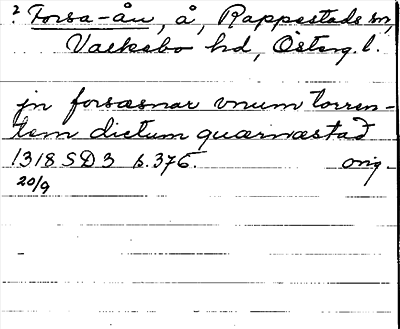 ? Forsa-ån, å, Rappestads sn,
Valkebo hd, Österg. l.
jn forsæsnar vnum torren-
tem dictum quærnæstad
1318 SD 3 s. 376. orig.
20/9